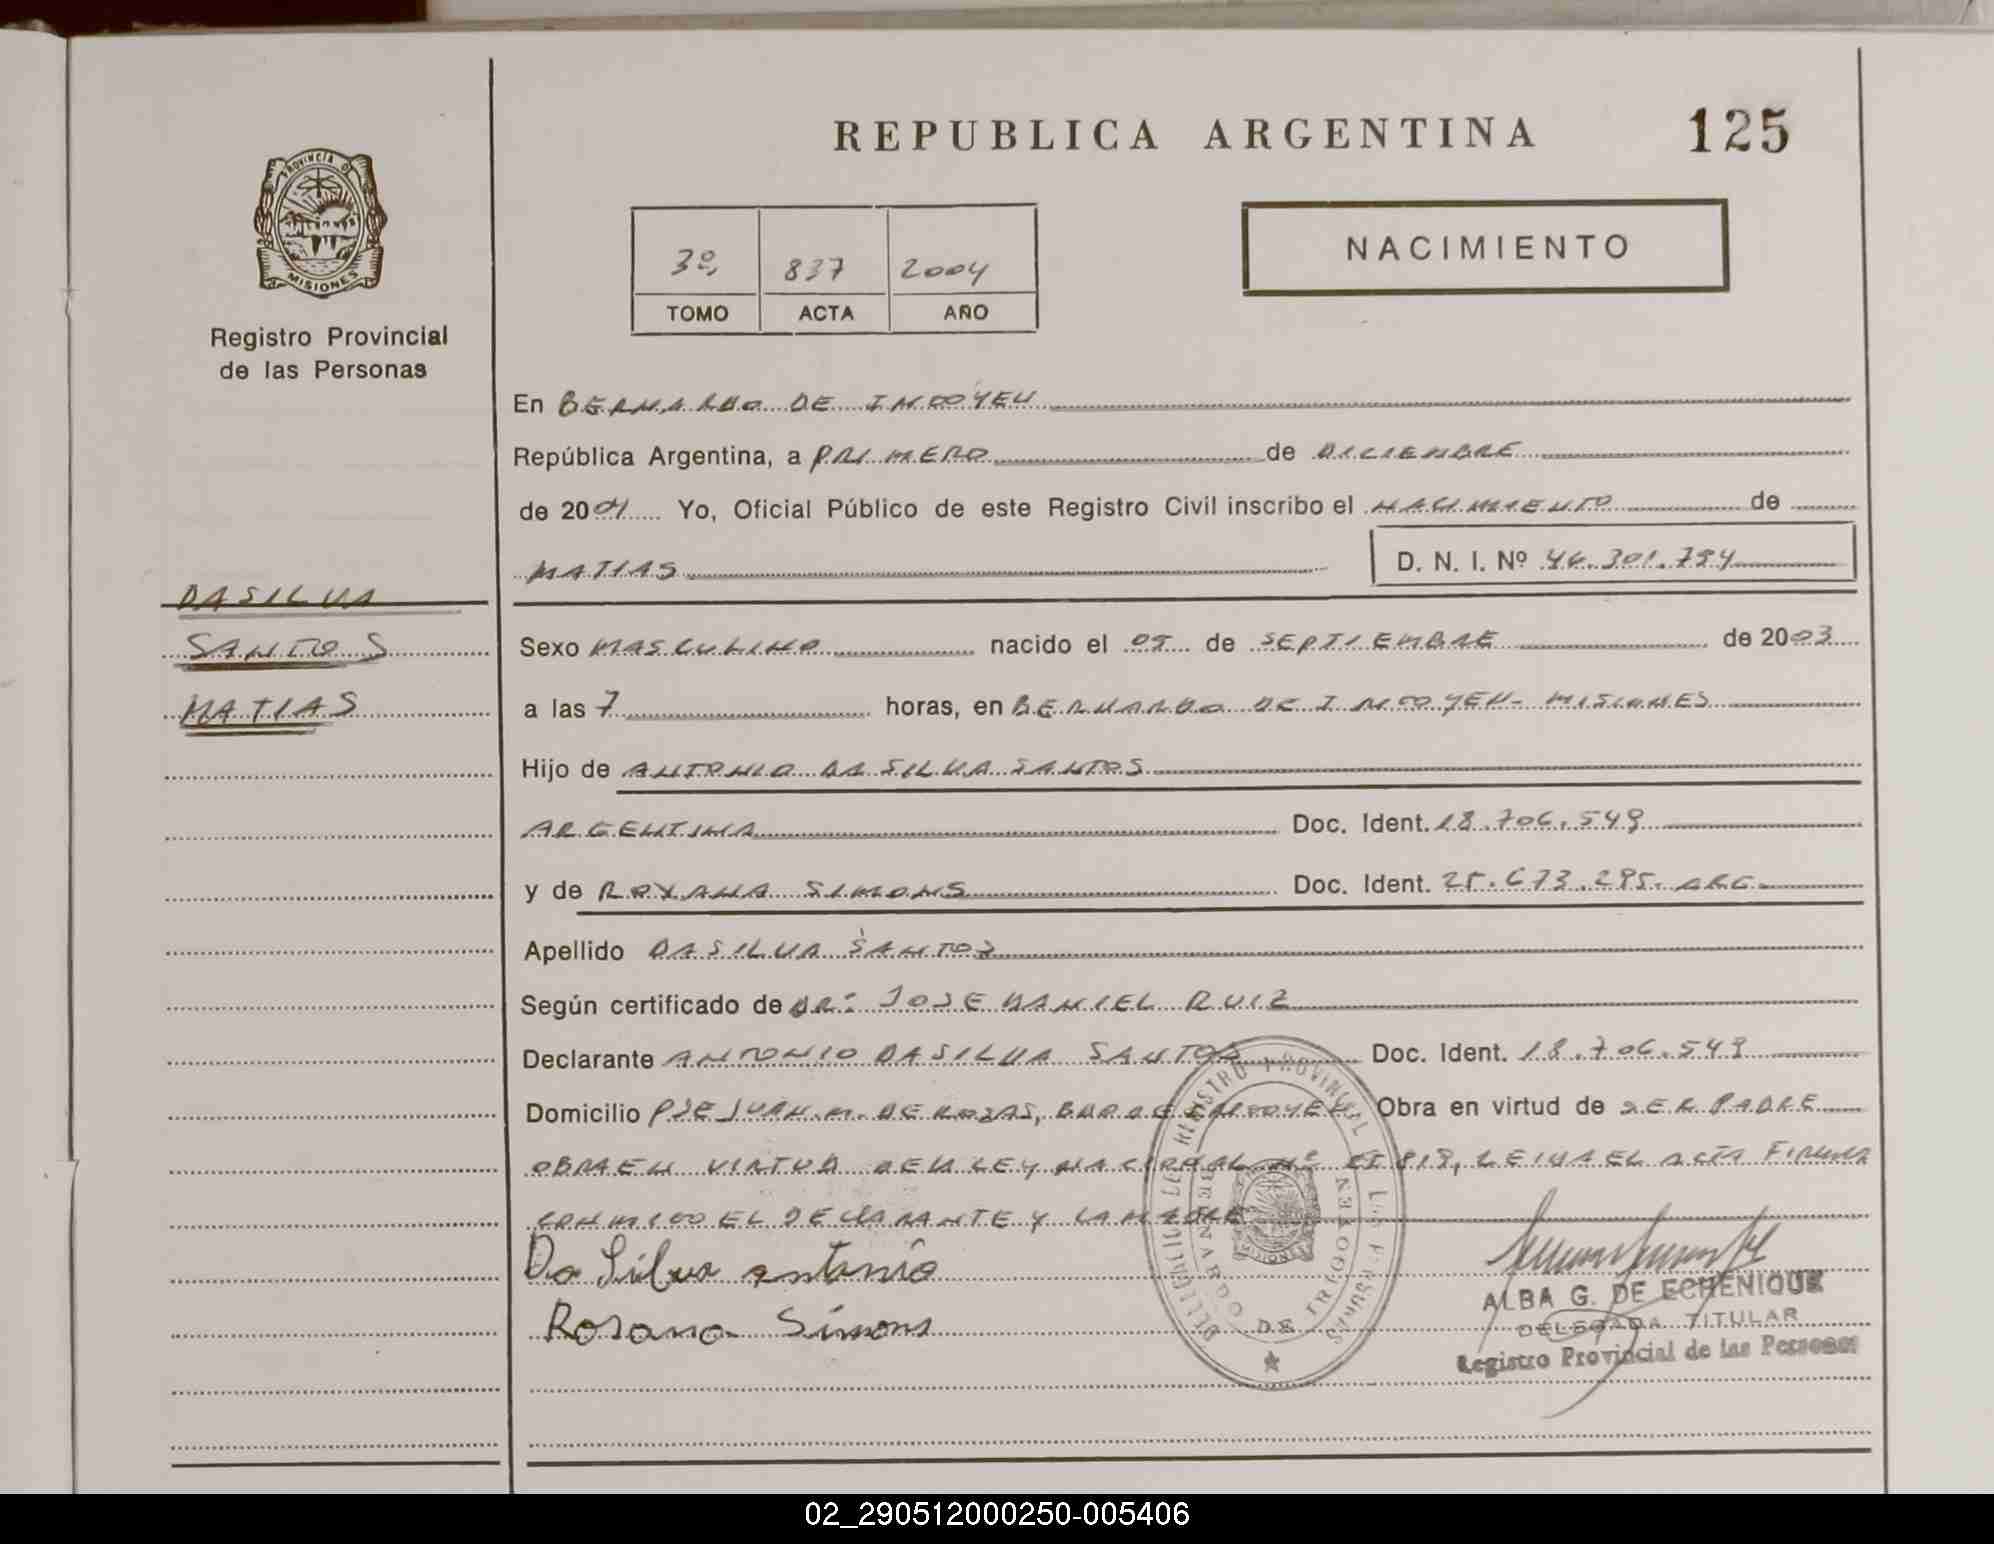 REPUBLICA ARGENTINA 125
PROVINCIA D
MISIONES
Registro Provincial
de las Personas
3º 837 2004
TOMO ACTA AÑO
NACIMIENTO
En BERNARDO DE IRIGOYEN
República Argentina, a PRIMERO de DICIEMBRE
de 2004 Yo, Oficial Público de este Registro Civil inscribo el NACIMIENTO de
MATIAS D. N. I. Nº 46.301.794
DASILVA
SANTOS
MATIAS
Sexo MASCULINO nacido el 05 de SEPTIEMBRE de 2003
a las 7 horas, en BERNARDO DE IRIGOYEN - MISIONES
Hijo de ANTONIO DA SILVA SANTOS
ARGENTINA Doc. Ident. 18.706.549
y de ROXANA SIMONS Doc. Ident. 25.673.295. ARG.
Apellido DASILVA SANTOS
Según certificado de DR: JOSE DANIEL RUIZ
Declarante ANTONIO DASILVA SANTOS Doc. Ident. 18.706.549
Domicilio PJE JUAN M. DE ROSAS, BDO DE IRIGOYEN Obra en virtud de SER PADRE
OBRA EN VIRTUD DE LA LEY NACIONAL Nº 25.819, LEIDA EL ACTA FIRMAN
CONMIGO EL DECLARANTE Y LA MADRE
Da Silva antonio
Rosana Simons
DELEGACION DE REGISTRO PROVINCIAL DE LAS PERSONAS
BERNARDO DE IRIGOYEN
MISIONES
ALBA G. DE ECHENIQUE
DELEGADA TITULAR
Registro Provincial de las Personas
02_290512000250-005406